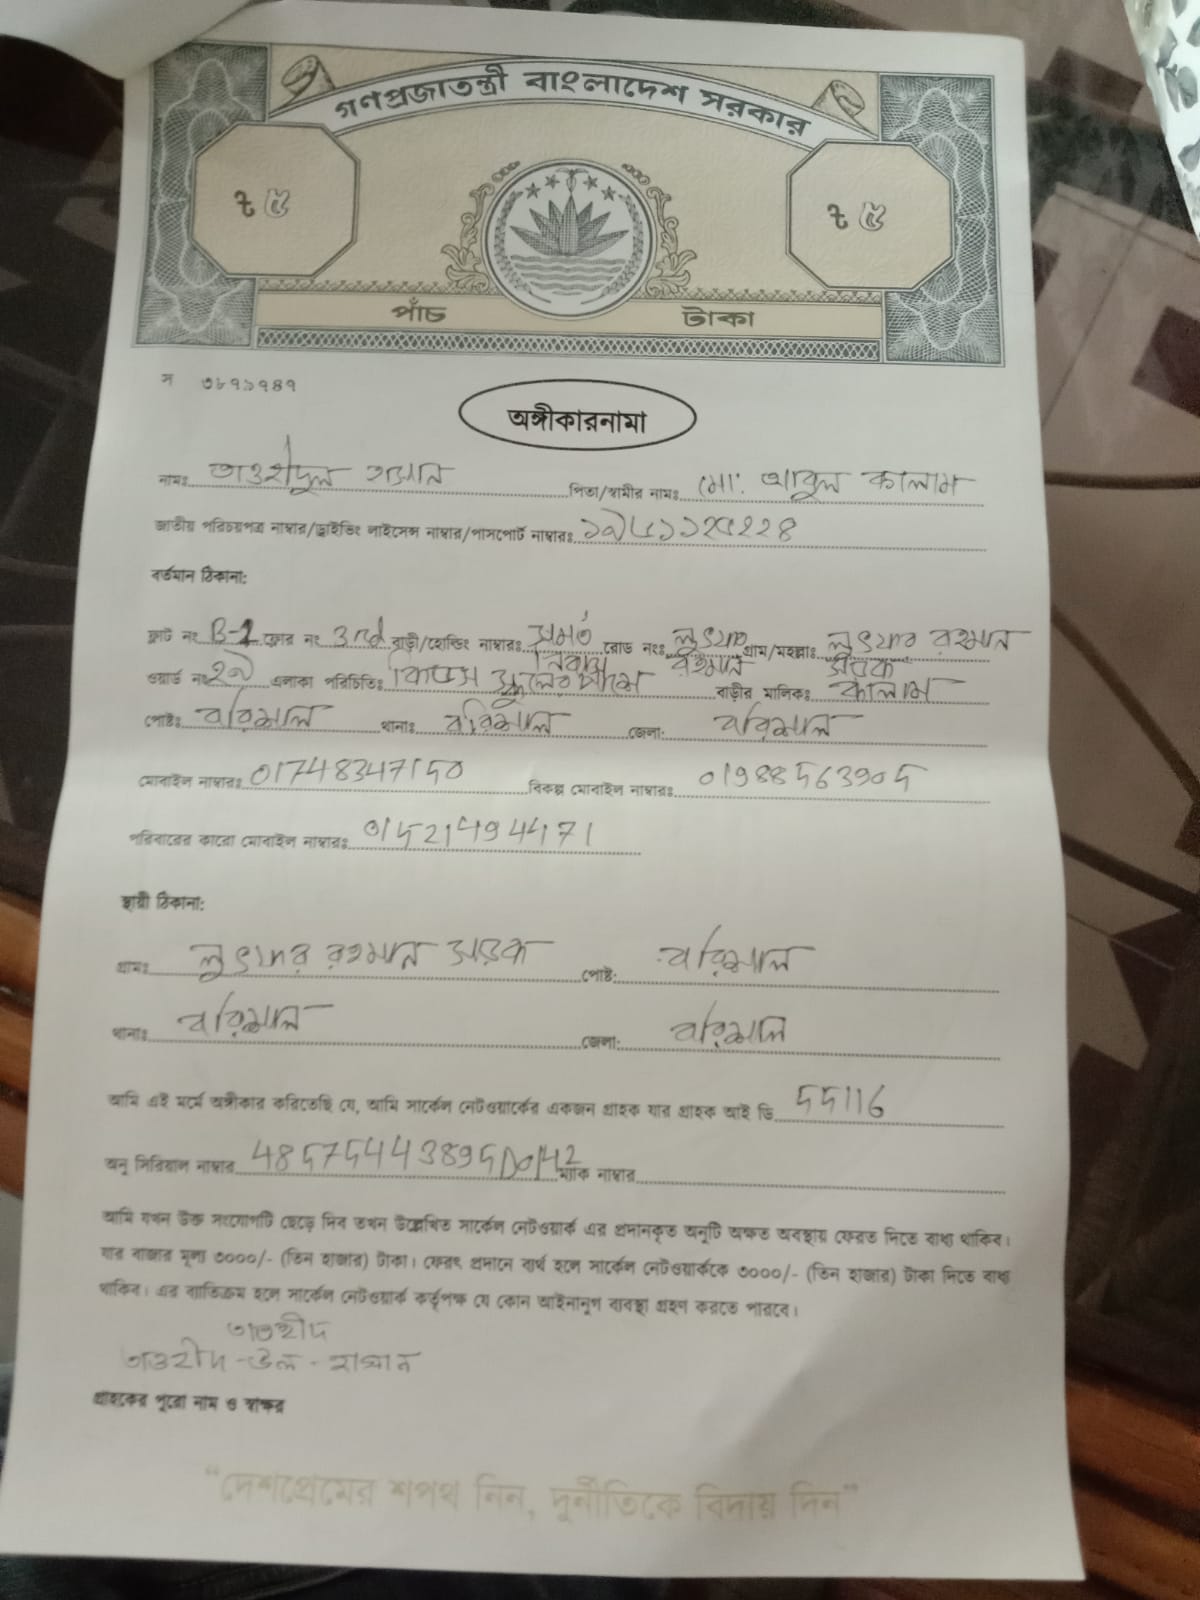 গণপ্রজাতন্ত্রী বাংলাদেশ সরকার
৳ ৫ ৳ ৫
পাঁচ টাকা
স ৩৮৭১৭৪৭
অঙ্গীকারনামা
নামঃ তাওহীদুল হাসান পিতা/স্বামীর নামঃ মো: আবুল কালাম
জাতীয় পরিচয়পত্র নাম্বার/ড্রাইভিং লাইসেন্স নাম্বার/পাসপোর্ট নাম্বারঃ
বর্তমান ঠিকানা:
ফ্লাট নং B-1 ফ্লোর নং 3rd বাড়ী/হোল্ডিং নাম্বারঃ রোড নংঃ লুৎফর রহমান গ্রাম/মহল্লাঃ লুৎফর রহমান সড়ক
ওয়ার্ড নং ২৯ এলাকা পরিচিতিঃ স্কুলের পাশে বাড়ীর মালিক: কালাম
পোষ্টঃ বরিশাল থানাঃ বরিশাল জেলা: বরিশাল
মোবাইল নাম্বারঃ 01748347150 বিকল্প মোবাইল নাম্বারঃ 01988563905
পরিবারের কারো মোবাইল নাম্বারঃ 01521494471
স্থায়ী ঠিকানা:
গ্রামঃ লুৎফর রহমান সড়ক পোষ্ট: বরিশাল
থানাঃ বরিশাল জেলা: বরিশাল
আমি এই মর্মে অঙ্গীকার করিতেছি যে, আমি সার্কেল নেটওয়ার্কের একজন গ্রাহক যার গ্রাহক আই ডি 55116
অনু সিরিয়াল নাম্বার ম্যাক নাম্বার
আমি যখন উক্ত সংযোগটি ছেড়ে দিব তখন উল্লেখিত সার্কেল নেটওয়ার্ক এর প্রদানকৃত অনুটি অক্ষত অবস্থায় ফেরত দিতে বাধ্য থাকিব।
যার বাজার মূল্য ৩০০০/- (তিন হাজার) টাকা। ফেরৎ প্রদানে ব্যর্থ হলে সার্কেল নেটওয়ার্ককে ৩০০০/- (তিন হাজার) টাকা দিতে বাধ্য
থাকিব। এর ব্যতিক্রম হলে সার্কেল নেটওয়ার্ক কর্তৃপক্ষ যে কোন আইনানুগ ব্যবস্থা গ্রহণ করতে পারবে।
তাওহীদ
তাওহীদ-উল-হাসান
গ্রাহকের পুরো নাম ও স্বাক্ষর
"দেশপ্রেমের শপথ নিন, দুর্নীতিকে বিদায় দিন"